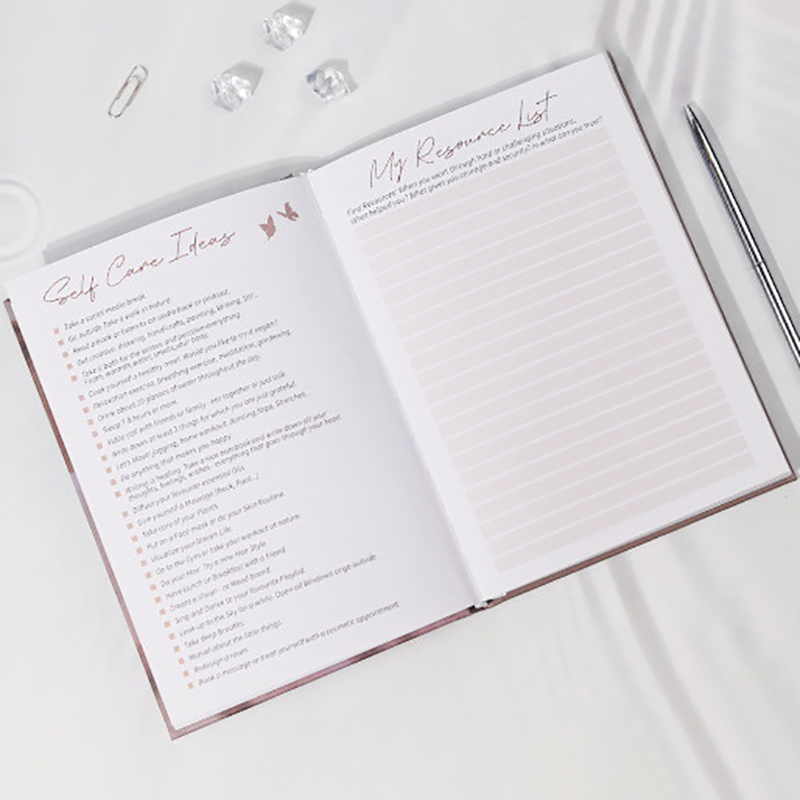 Self Care Ideas
Take a social media break.
Go outside. Take a walk in nature.
Read a book or listen to an audio book or podcast.
Get creative: drawing, handicrafts, painting, writing, DIY..
Take a bath for the senses and perceive everything.
Foam, warmth, water, smells, your body.
Cook yourself a healthy meal. Would you like to try it vegan?
Relaxation exercise, breathing exercise, meditation, gardening.
Drink about 10 glasses of water throughout the day.
Sleep 7-8 hours or more.
Enjoy call with friends or family - eat together or just talk.
Write down at least 3 things for which you are just grateful.
Let's Move! Jogging, home workout, dancing, Yoga, Stretches...
Do anything that makes you happy.
Writing is healing. Take a nice notebook and write down all your
thoughts, feelings, wishes - everything that goes through your head.
Diffuse your favourite essential Oils.
Give yourself a Massage (Neck, Foot...)
Take care of your Plants.
Put on a Face mask or do your Skin Routine.
Visualize your Dream Life.
Go to the Gym or take your workout at nature.
Do your Hair. Try a new Hair Style.
Have Lunch or Breakfast with a friend.
Create a Vision - or Mood board.
Sing and Dance to your Favourite Playlist.
Look up to the Sky for a while. Open all Windows or go outside
Take deep Breaths.
Marvel about the little things.
Redesign a room.
Book a massage or treat yourself with a cosmetic appointment.
My Resource List
Find Resources! When you went through hard or challenging situations,
what helped you? What gives you courage and security? In what can you trust?